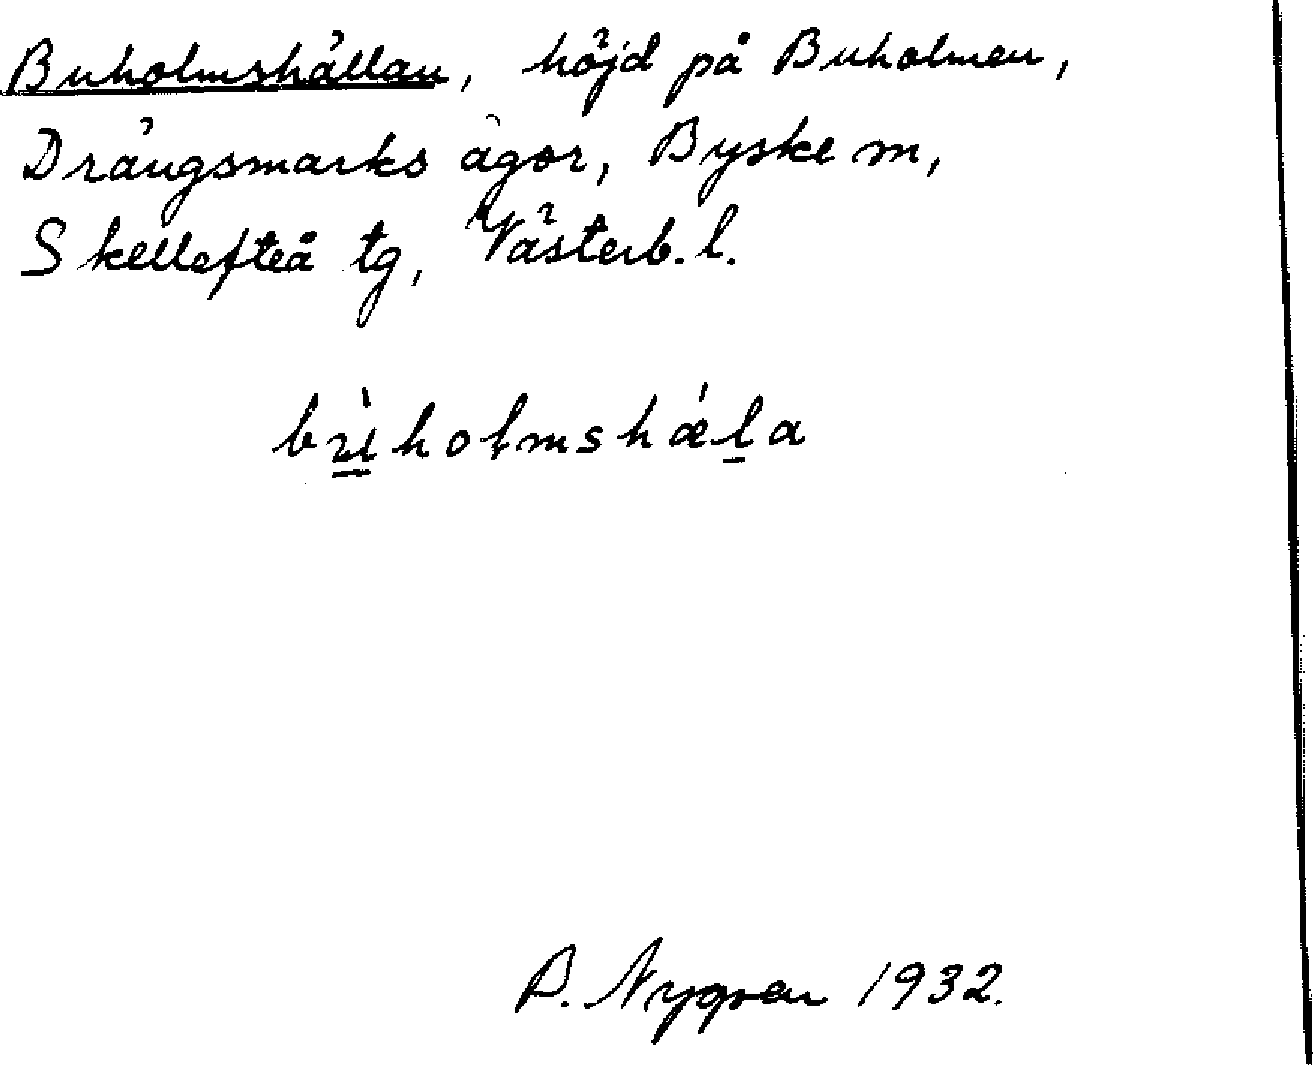 Buholmshällan, höjd på Buholmen,
Drängsmarks ägor, Byske sn,
Skellefteå tg, Västerb. l.
bùholmshǽla
P. Nygren 1932.